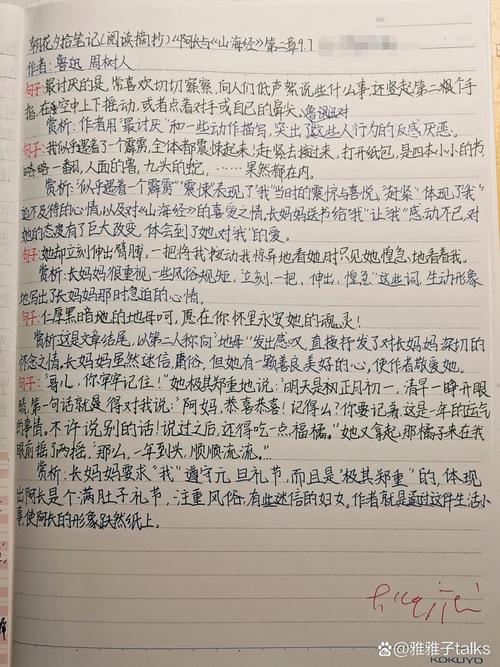 朝花夕拾笔记(阅读摘抄)《阿长与《山海经》第二章9.7
作者:鲁迅 周树人
句子:最讨厌的是,常喜欢切切察察,向人们低声絮说些什么事,还竖起第二根手
指,在空中上下摇动,或者点着对手或自己的鼻尖。
赏析:作者用"最讨厌"和一些动作描写,突出了这些人行为的反感厌恶。
句子:我似乎遇着一个霹雳,全体都震悚起来;赶紧去接过来,打开纸包,是四本小小的书
略略一翻,人面的兽,九头的蛇,……果然都在内。
赏析:"似乎遇着一个霹雳""震悚"表现了"我"当时的震惊与喜悦,"赶紧"体现了"我"
迫不及待的心情,以及对《山海经》的喜爱之情,长妈妈送书给"我"让"我"感动不已,对
她的态度有了巨大改变,体会到了她对"我"的爱。
句子:她却立刻伸出臂膊,一把将我按动我惊异地看她时,只见她惶急地看着我。
赏析:长妈妈很重视一些风俗规矩,立刻,一把,伸出,惶急"这些词,生动形象
地写出了长妈妈那时急迫的心情。
句子:仁厚黑暗地的地母呵,愿在你怀里永安她的魂灵!
赏析:这是文章结尾,以第二人称向"地母"发出感叹,直接抒发了对长妈妈深切的
怀念之情,长妈妈虽然迷信,庸俗,但她有一颗善良美好的心,使作者敬爱她。
句子:"哥儿,你牢牢记住!"她极其郑重地说:"明天是正月初一,清早一睁开眼
睛,第一句话就是得对我说:"阿妈,恭喜恭喜!记得么?你要记着,这是一年的运气
的事情。不许说别的话!说过之后,还得吃一点福橘。"她又拿起那橘子来在我
眼前摇了两摇,"那么,一年到头,顺顺流流。"
赏析:长妈妈要求"我"遵守元旦礼节,而且是"极其郑重"的,体现
出阿长是个满肚子礼节,注重风俗,有些迷信的妇女。作者就是通过这件生活小
事,使阿长的形象跃然纸上。
KOKUYO
@雅雅子talks